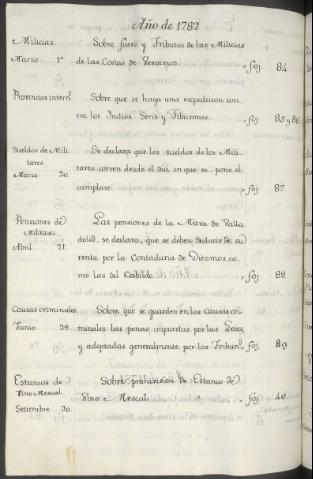 Año de 1782
Milicias. Sobre fuero y Tributos de las Milicias
Marzo 1º de las Costas de Veracruz. foj. 84.
Provincias intern.s Sobre que se haga una expedicion con-
tra los Indios Seris y Tiburones. foj. 85 y 86
Sueldos de Mili- Se declara que los sueldos de los Mili-
tares tares corren desde el dia en que se pone el
Marzo 20. cumplase foj. 87.
Pensiones de Las pensiones de la Mitra de Valla-
Mitras. dolid, se declara, que se deben deducir de su
Abril 21. renta por la Contaduria de Diezmos, co-
mo las del Cabildo foj. 88.
Causas criminales Sobre que se guarden en las causas cri-
Junio 29. minales las penas impuestas por las Leyes,
y adoptadas generalmente por los Tribun.s foj. 89
Estancos de Sobre prohivision de Estanco de
Vino Mescal. Vino Mescal. foj. 40.
Setiembre 30.